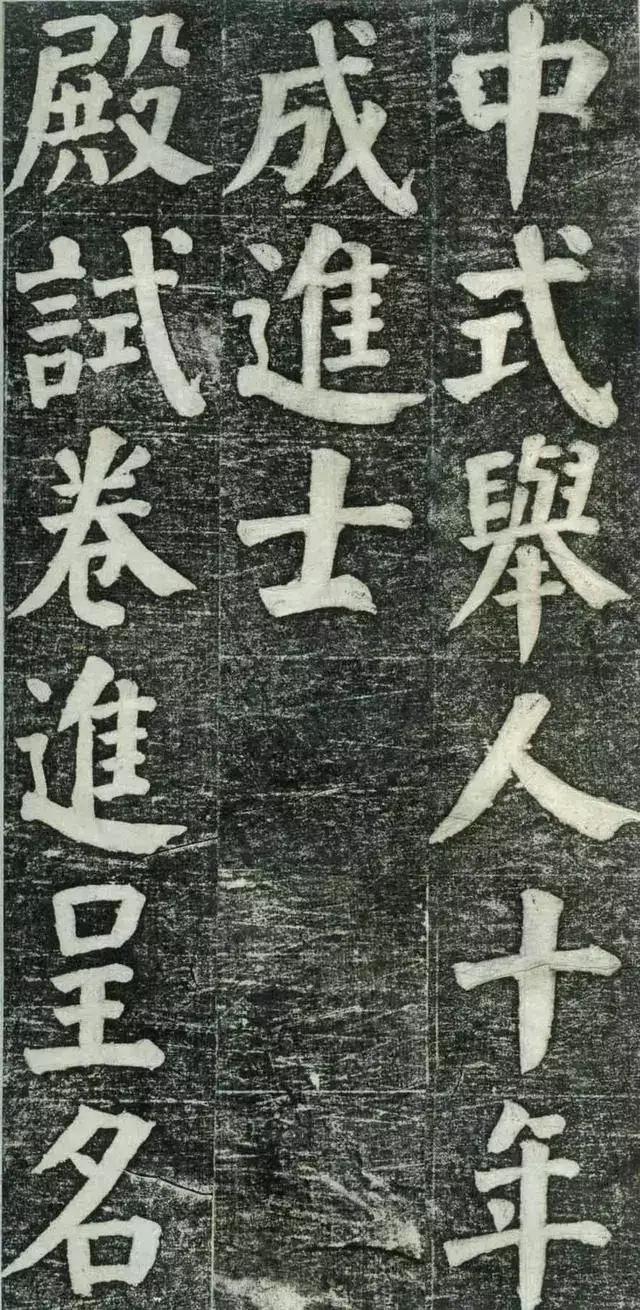 中式舉人十年
成進士
殿試卷進呈名